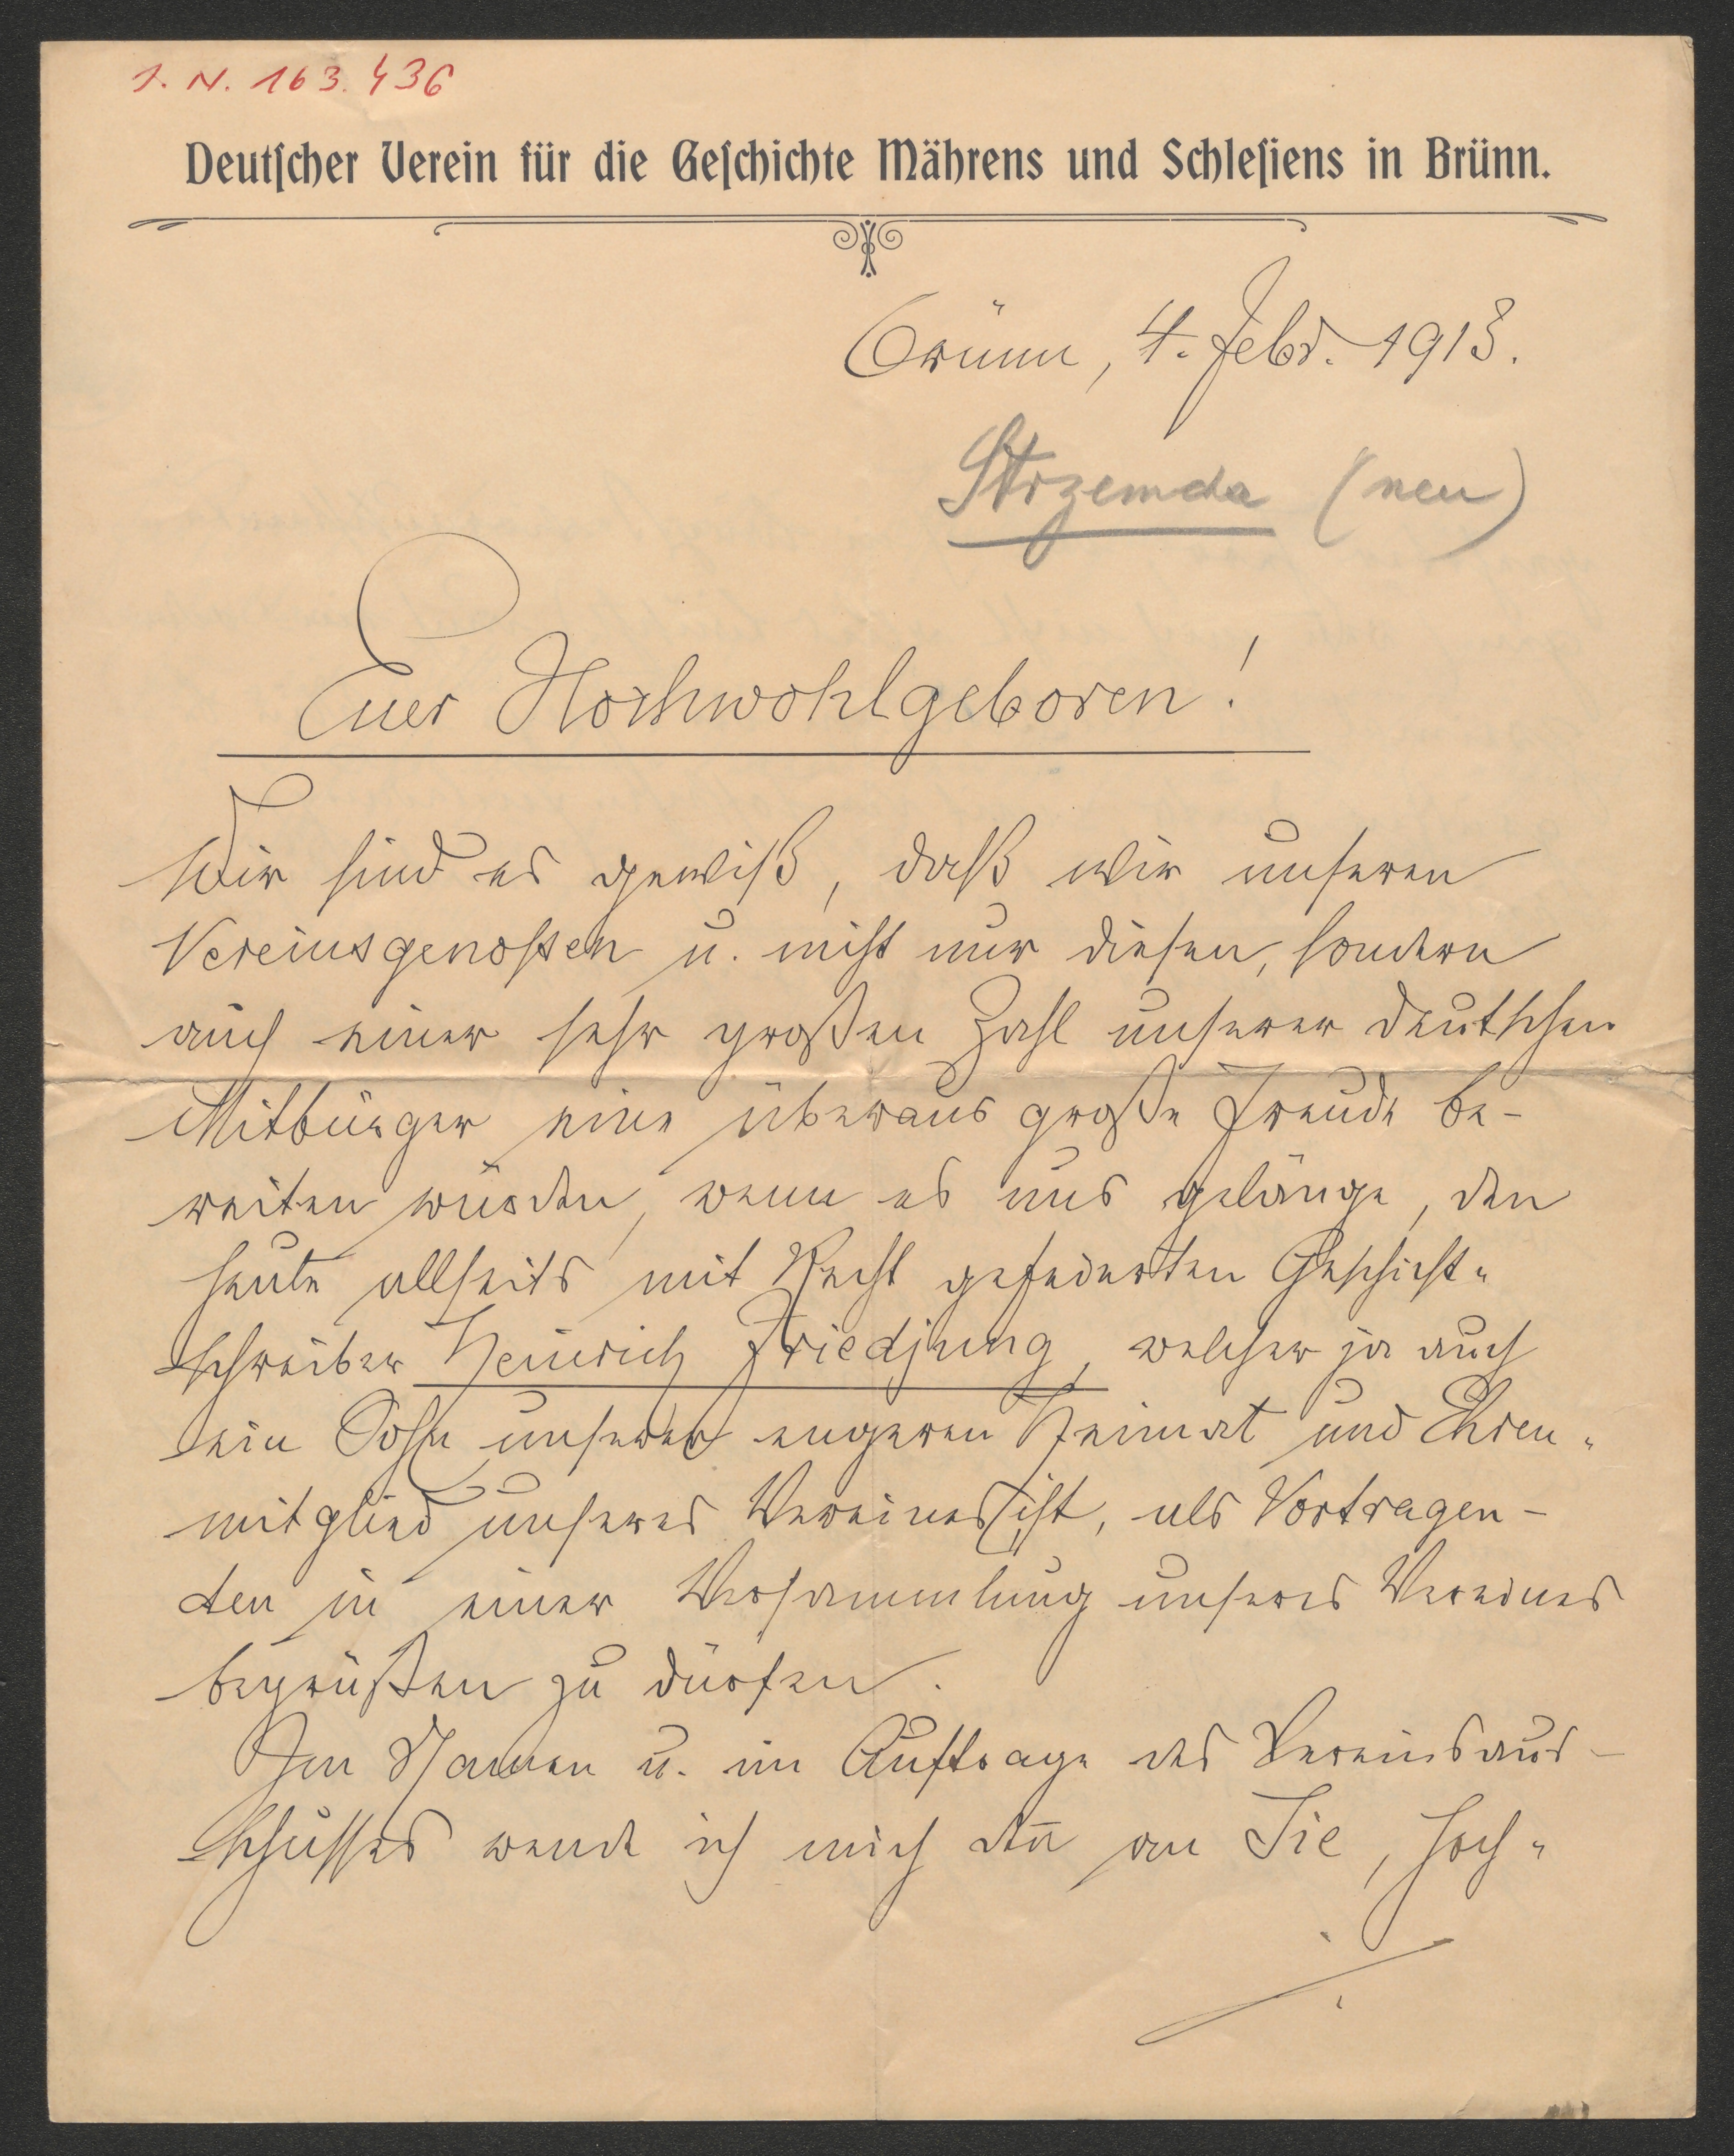 I. N. 163.436
Deutſcher Verein für die Geſchichte Mährens und Schleſiens in Brünn.
Brünn, 4. Febr. 1913.
Strzemcha (neu)
Euer Hochwohlgeboren!
Wir sind es gewiß, daß wir unseren
Vereinsgenossen u. nicht nur diesen, sondern
auch einer sehr großen Zahl unserer deutschen
Mitbürger eine überaus große Freude be-
reiten würden, wenn es uns gelänge, den
heute allseits mit Recht gefeierten Geschicht-
schreiber Heinrich Friedjung, welcher ja auch
ein Sohn unserer engeren Heimat und Ehren-
mitglied unseres Vereines ist, als Vortragen-
den in einer Versammlung unseres Vereines
begrüßen zu dürfen.
Im Namen u. im Auftrage des Vereinsaus-
schusses wende ich mich den̄ an Sie, hoch-
./.